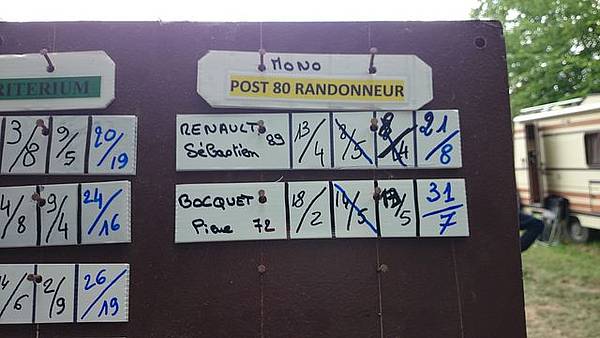 RITERIUM
MONO
POST 80 RANDONNEUR
3/8 9/5 20/19
RENAULT 89
Sébastien
13/4 8/4 21/8
4/8 9/4 24/16
BOCQUET
Pierre 72
18/2 14/5 13/5 31/7
/6 2/9 26/19